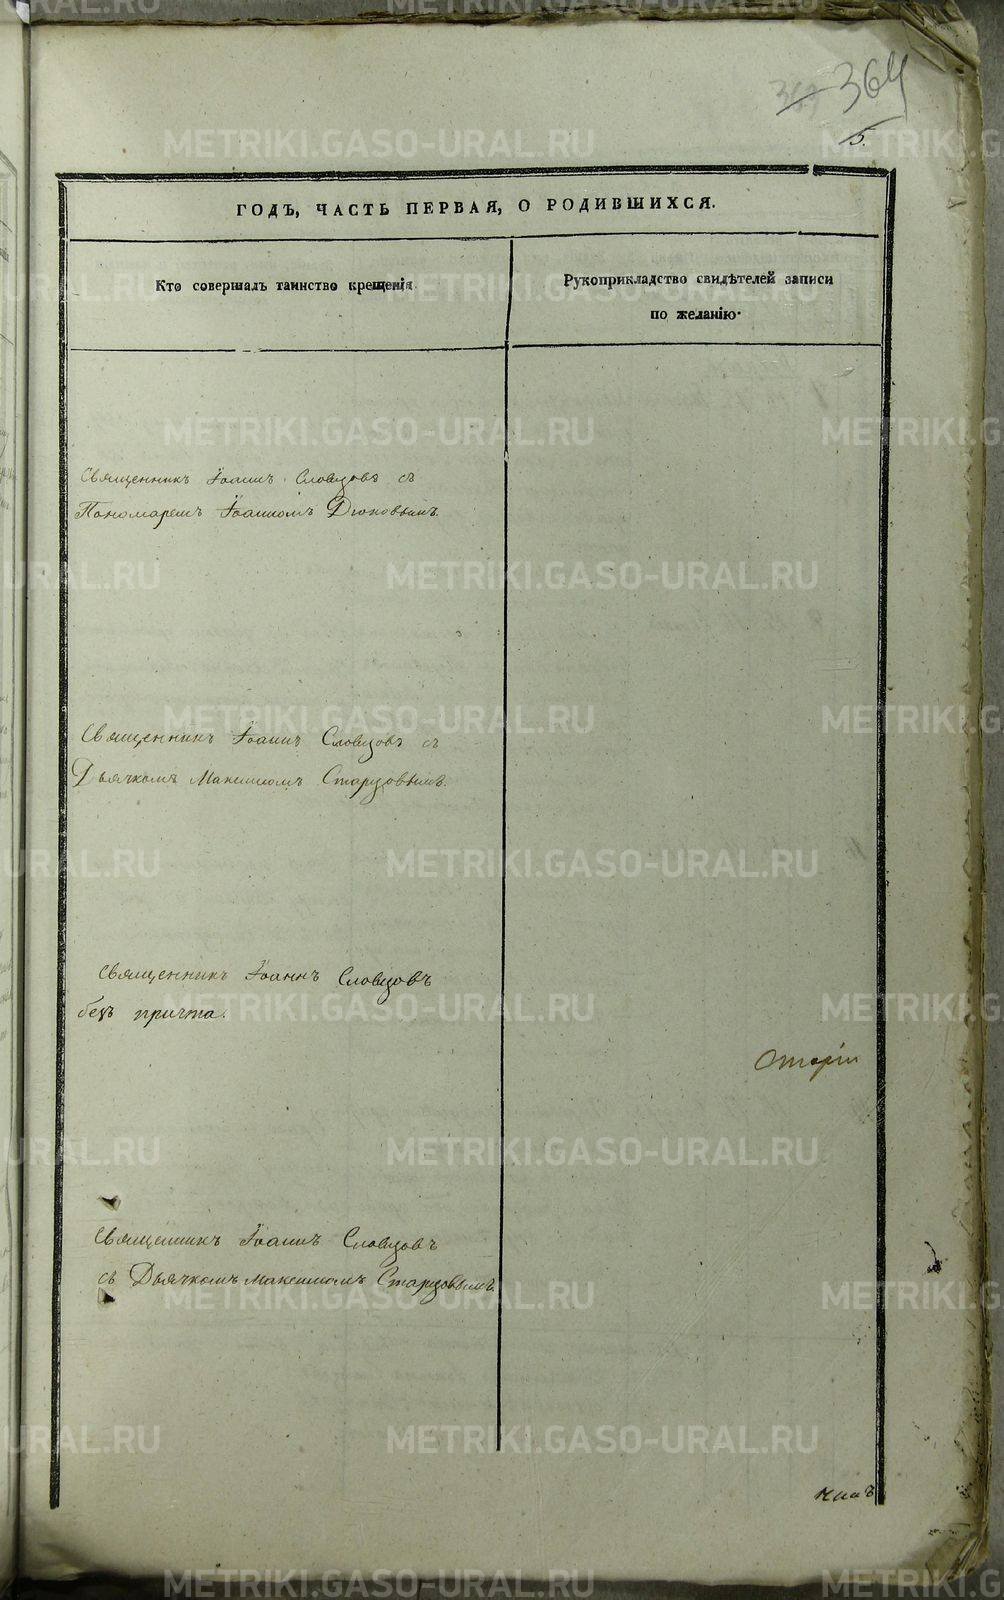 363 364
5.
ГОДЪ, ЧАСТЬ ПЕРВАЯ, О РОДИВШИХСЯ.
Кто совершалъ таинство крещенія
Рукоприкладство свидѣтелей записи
по желанію.
Священникъ Іоаннъ Словцовъ съ
Пономаремъ Іоанномъ Дюковымъ.
Священникъ Іоаннъ Словцовъ съ
Дьячкомъ Максимомъ Старцовымъ.
Священникъ Іоаннъ Словцовъ
безъ причта.
Священникъ Іоаннъ Словцовъ
съ Дьячкомъ Максимомъ Старцовымъ.
METRIKI.GASO-URAL.RU